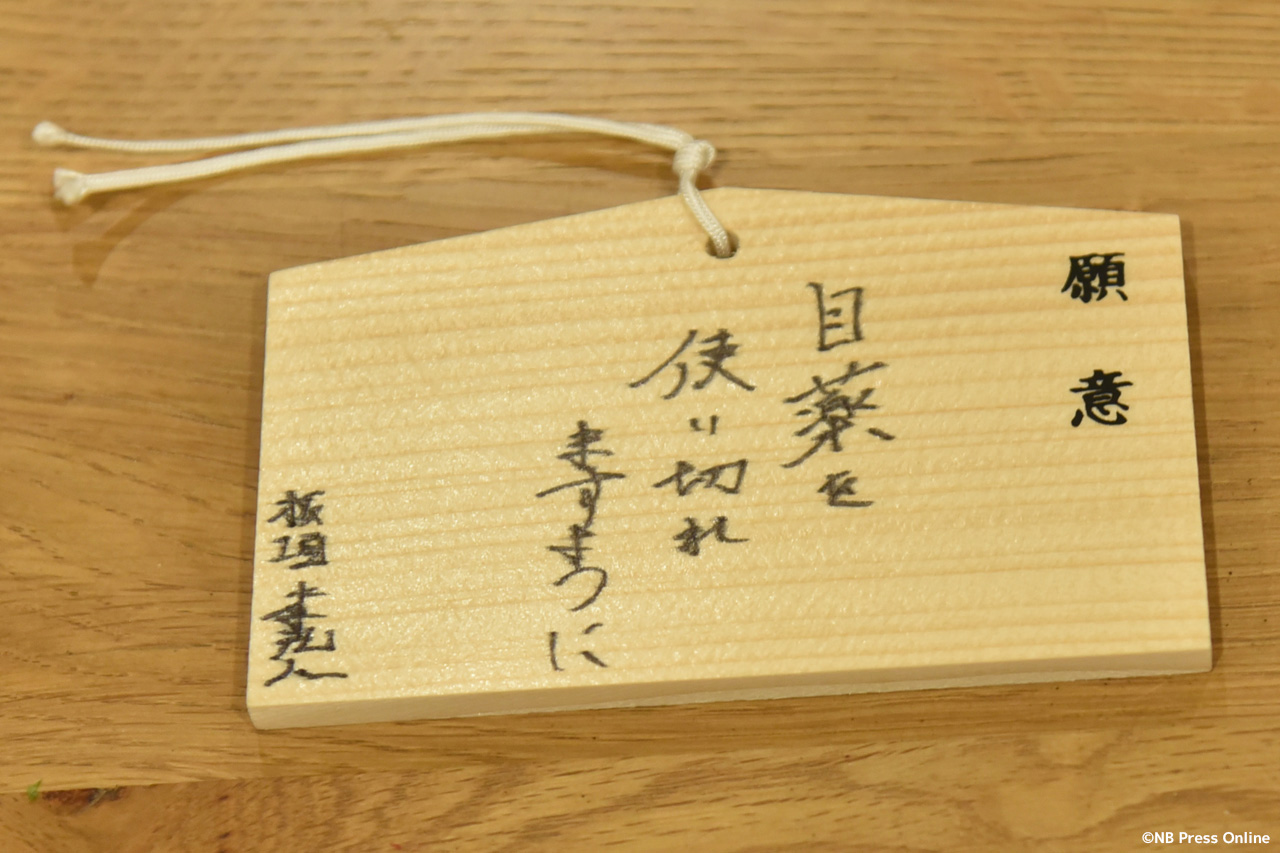 願意
目薬を
使い切れ
ますように
板垣李光人
©NB Press Online